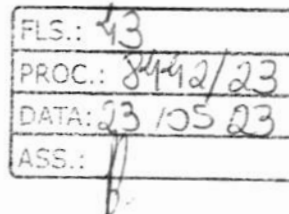 FLS.: 43
PROC.: 8442/23
DATA: 23/05 23
ASS.: